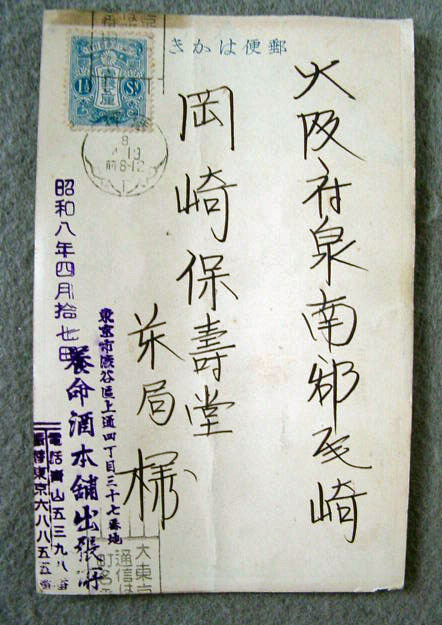 郵便はかき
1½ Sn
8
前8-12
大阪府泉南郡尾崎
岡崎保壽堂
薬局様
昭和八年四月拾七日
東京市澁谷區上通四丁目三十七番地
養命酒本舗出張所
電話青山五三九八番
振替東京六八八五五番
大東京
通信は
町名